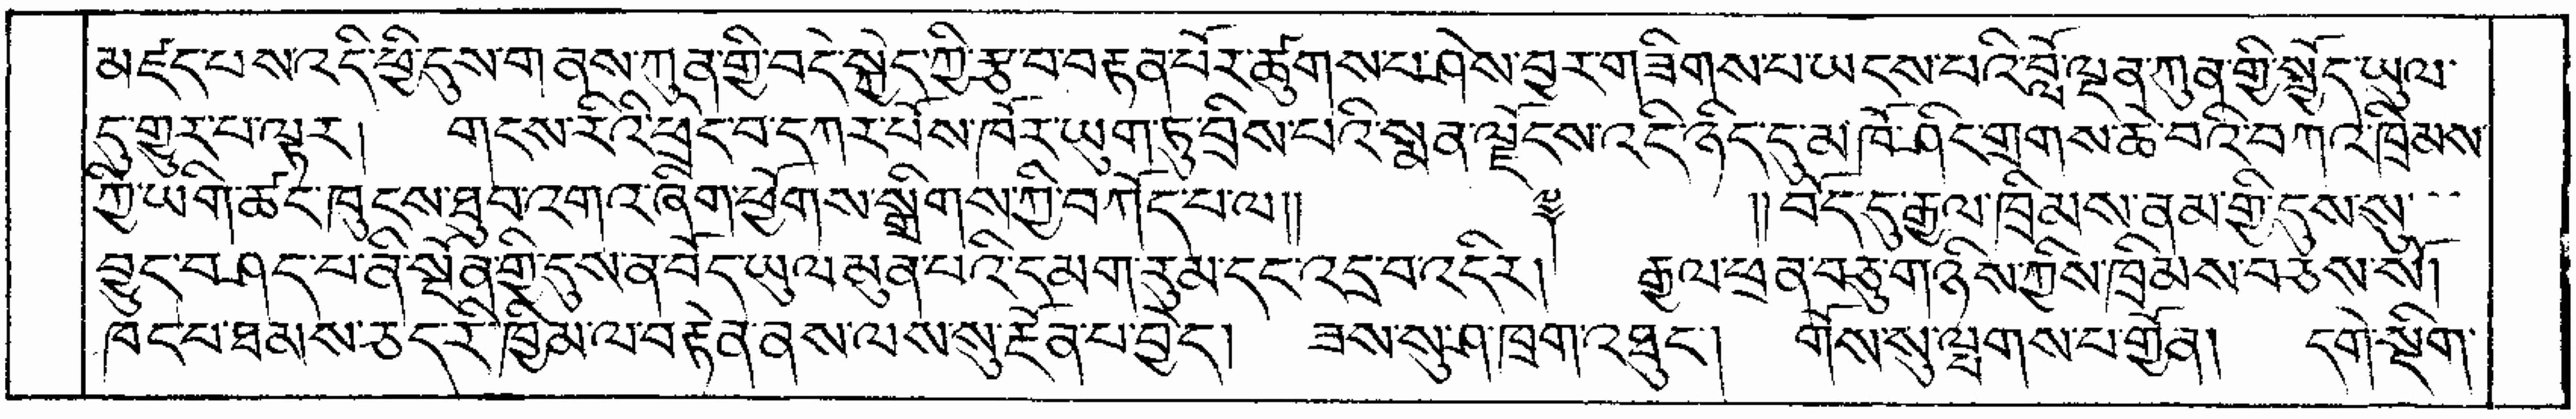 མཛད་པས་འདི་ཕྱི་དུས་གནས་ཀུན་གྱི་བདེ་སྐྱེད་ཀྱི་རྩ་བ་བརྟན་པོར་ཚུགས་པ་ཤེས་བྱར་གཟིགས་པ་ཡངས་པའི་བློ་ལྡན་ཀུན་གྱི་སྤྱོད་ཡུལ་
དུ་གྱུར་པ་ལྟར། གངས་རིའི་ཕྲེང་བ་དཀར་པོས་ཁོར་ཡུག་ཏུ་བྲིས་པའི་སྨན་ལྗོངས་འདི་ཉིད་དུ་མ་ཁོ་ཤིང་གྲགས་ཆེ་བའི་བཀའ་ཁྲིམས་
ཀྱི་ཡིག་ཚང་ཁུངས་ཐུབ་འགའ་ཞིག་ཕྱོགས་སྒྲིགས་ཀྱི་བཀོད་པ་ལ།། ༈ །།བོད་དུ་རྒྱལ་ཁྲིམས་ནམ་གྱི་དུས་སུ་
བྱུང་བ་ཤད་པ་ནི་སྔོན་གྱི་དུས་ན་བོད་ཡུལ་མུན་པའི་དམག་རུམ་དང་འདྲ་བ་འདིར། རྒྱལ་ཕྲན་བཅུ་གཉིས་ཀྱིས་ཁྲིམས་བཅས་སོ།
ཁང་པ་ཐམས་ཅད་རི་ཁྱིམ་ལ་བརྟེན་ནས་ལས་སུ་རྔོན་པ་བྱེད། ཟས་སུ་ཤ་ཁྲག་འཐུང་། གོས་སུ་ལྤགས་པ་གྱོན། དགེ་སྡིག་